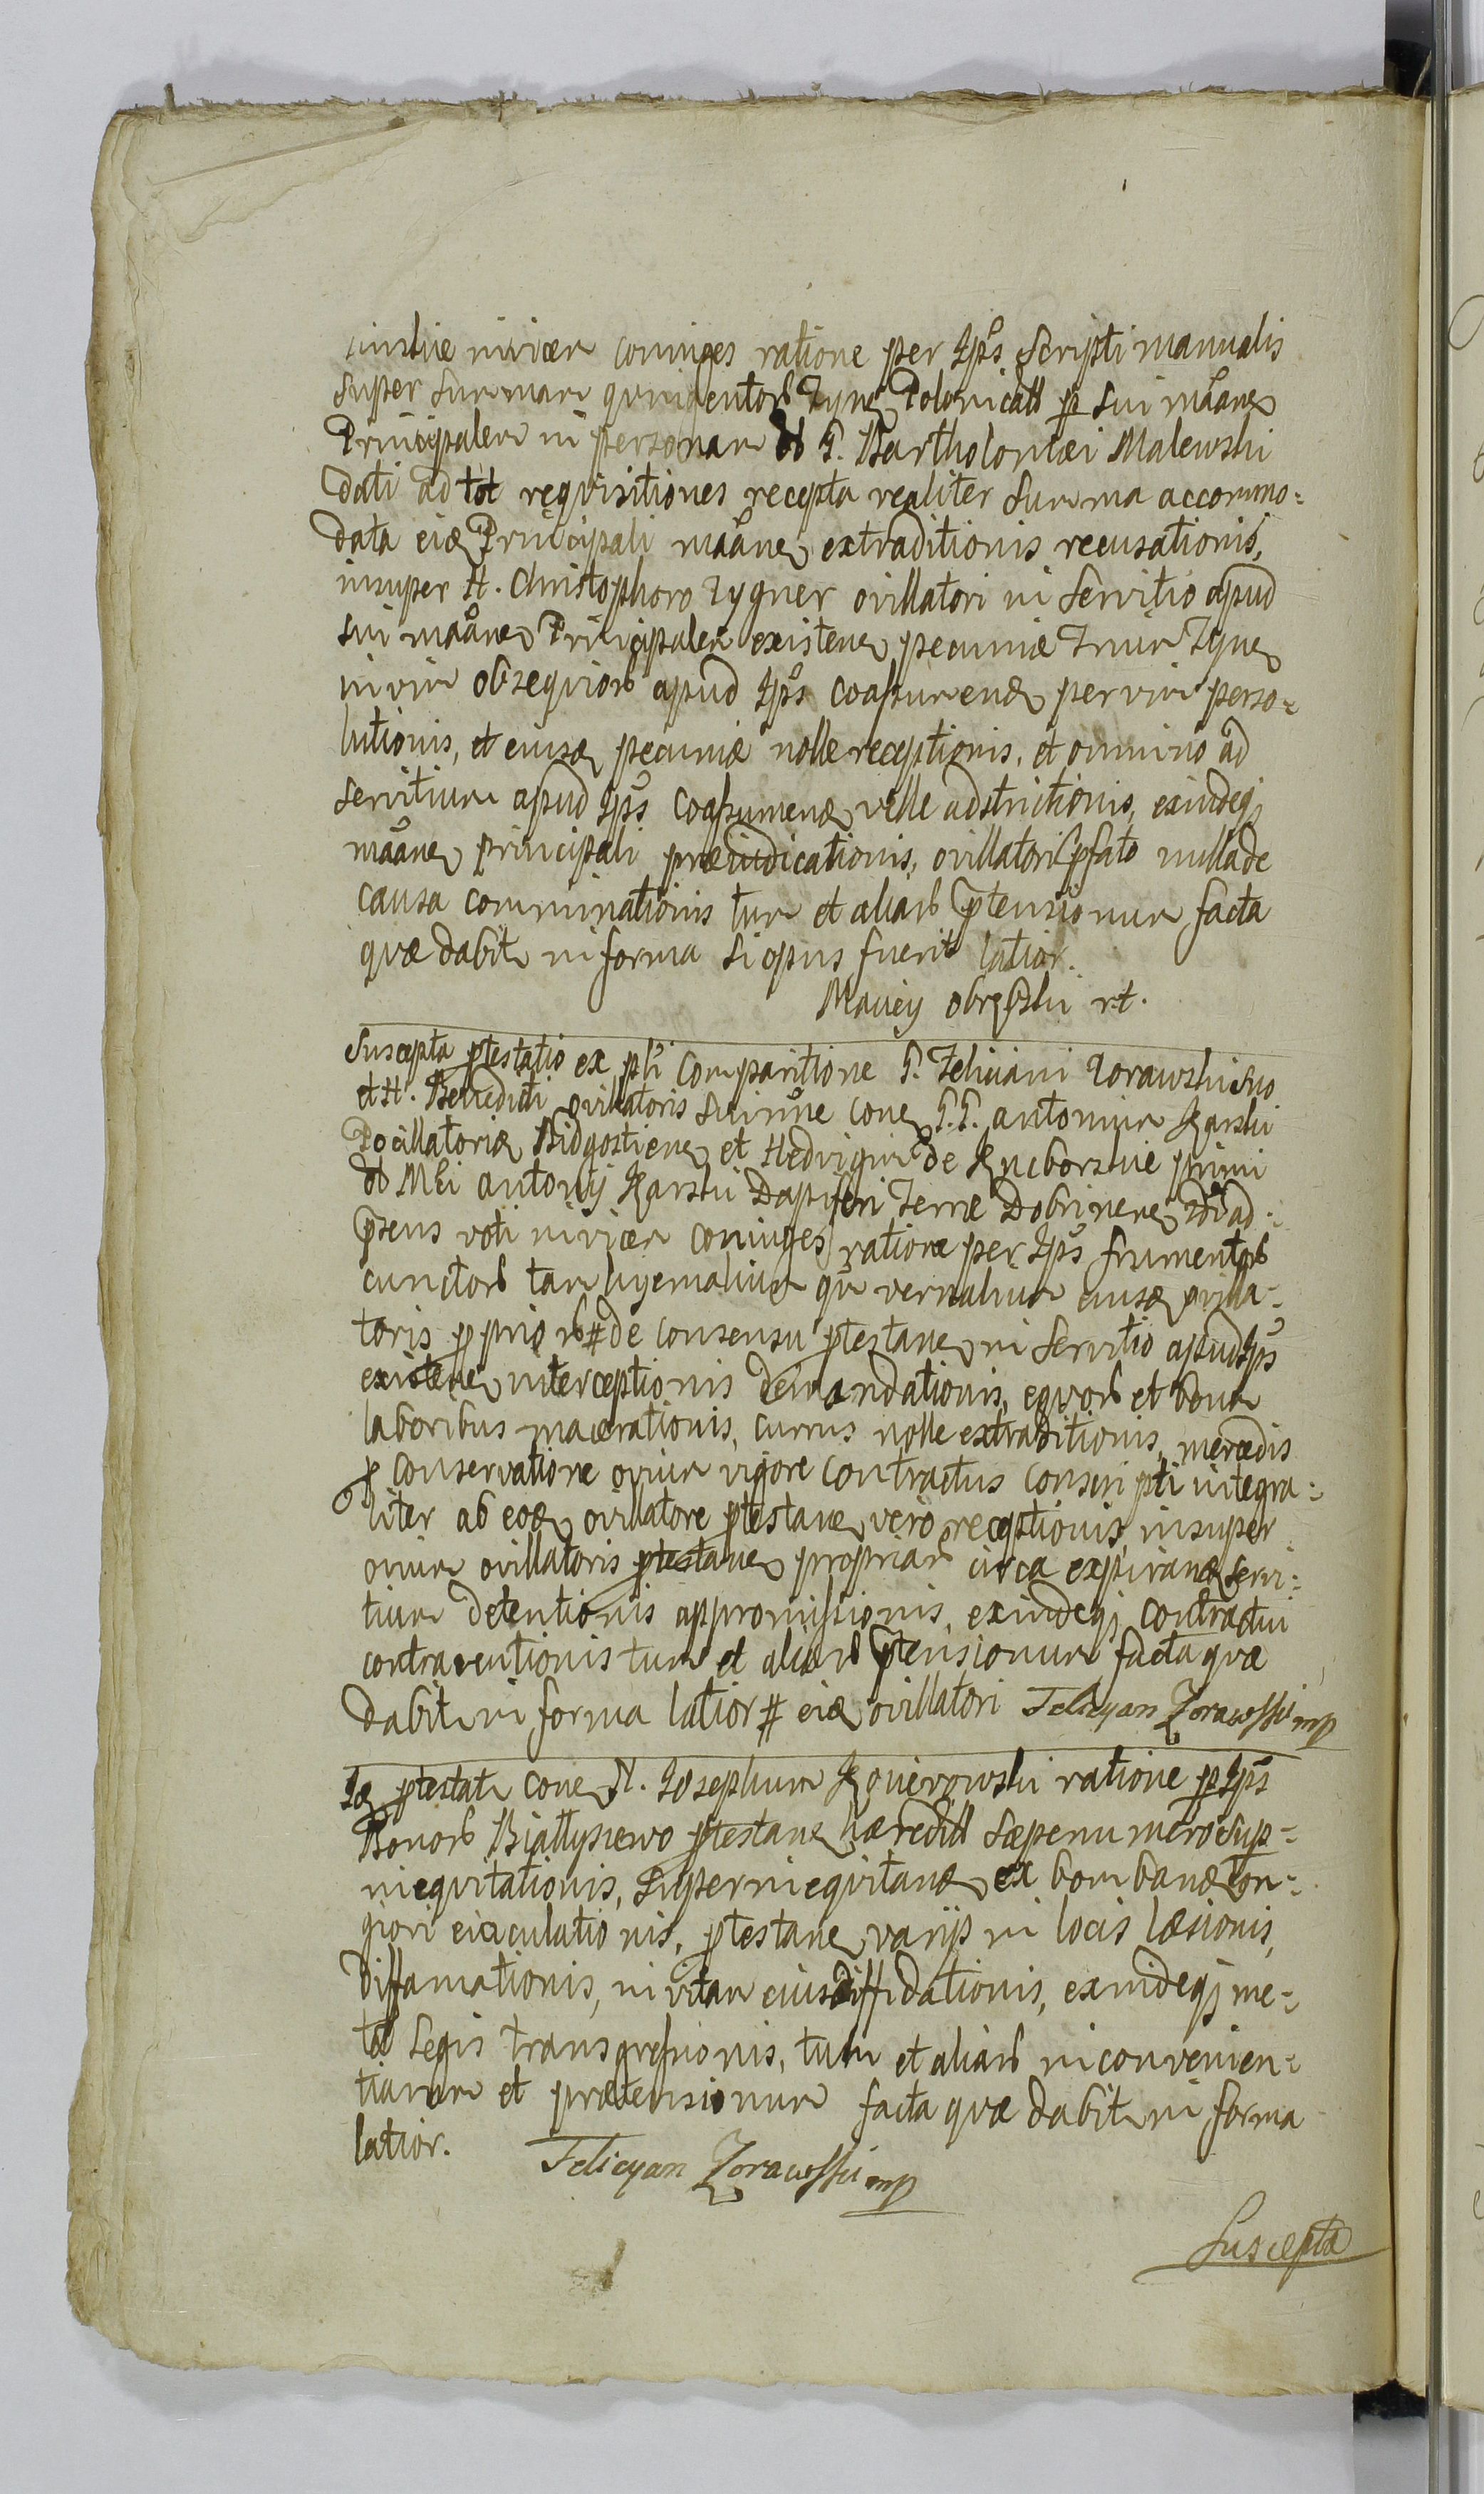 invicem coniuges ratione per Ips Scripti manualis
super Summam quingentor Tynf Polonicall p sui mane
Principalem in personam G. Bartholomæi Malewski
dati ad tot requisitiones recepta realiter Summa accommo=
data eid Principali maane extraditionis recusationis,
insuper H. Christophoro Zygner ovillatori in Servitio apud
sui maane Principalem existen pecuniæ
obsequior apud Ips coassumend per perso=
lutionis, et eiusd pecuniæ nolle receptionis, et omnino ad
servitium apud Ips coassumend velle adstrictionis, exindeq
maane principali præiudicationis, ovillatori pfato nulla de
causa comminationis tum et aliar ptensionum facta
quæ dabit in forma si opus fuerit latior.
Maciej
Suscepta ptestatio ex pli Comparitione G. Feliciani Zorawski suo
et H. Benedicti ovillatoris Sui nne con G.G. Antonium Karski
Pocillatorid Bidgostien et Hedvigim de primi
Mci Antonij Karski Dapiferi Terræ Dobrinen ad
ptens voti invicem coniuges ratione per Ips frumentor
cunctor tam hyemalium qu vernalium eiusd ovilla=
toris pprior # de consensu ptestan in Servitio apud Ips
existen interceptionis demandationis, equor et boum
laboribus macerationis, currus nolle extraditionis, mercedis
p conservatione ovium vigore contractus conscripti integra=
liter ab eod ovillatore ptestan vero receptionis, insuper
ovium ovillatoris ptestan propriar circa expirand servi=
tium detentionis appromissionis, exindeq contractui
contraventionis tum et aliar ptensionum facta quæ
dabit in forma latior # eid ovillatori Felicyan Zorawski mp
Id ptestat con N. Josephum ratione p Ips
Bonor Białłysiewo ptestan hæredill sæpenumero sup=
inequitationis, superinequitand ex bombard lon=
giori eiaculationis, ptestan varijs in locis læsionis,
diffamationis, in vitam eiusd diffidationis, exindeq me=
tæ Legis transgressionis, tum et aliar inconvenien=
tiarum et prætensionum facta quæ dabit in forma
latior. Felicyan Zorawski mp
Suscepta